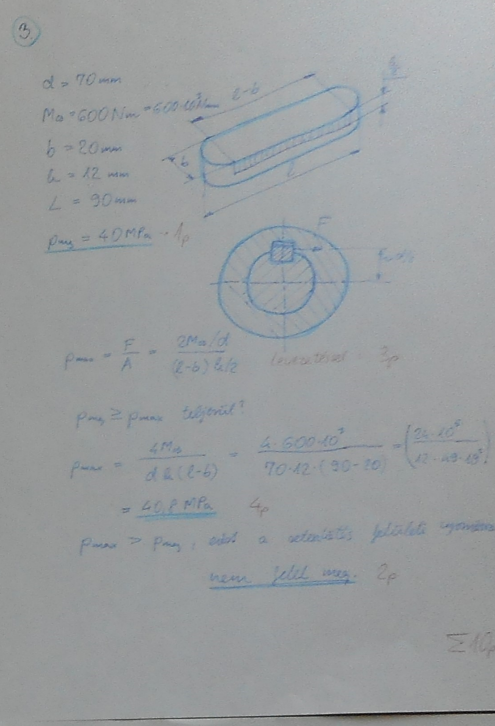 3.
d = 70 mm
Mcs = 600 Nm = 600·10³ Nmm
b = 20 mm
h = 12 mm
L = 90 mm
pmeg = 40 MPa 1p
l-b
b
l
F
pmax = F/A = (2Mcs/d)/((l-b) h/2) 3p
pmeg ≥ pmax teljesül?
pmax = 4Mcs/(d h (l-b)) = 4·600·10³/(70·12·(90-20)) = (24·10⁵/12·49·10².
= 40,8 MPa 4p
pmax > pmeg, a felületi
nem felel meg. 2p
Σ10p